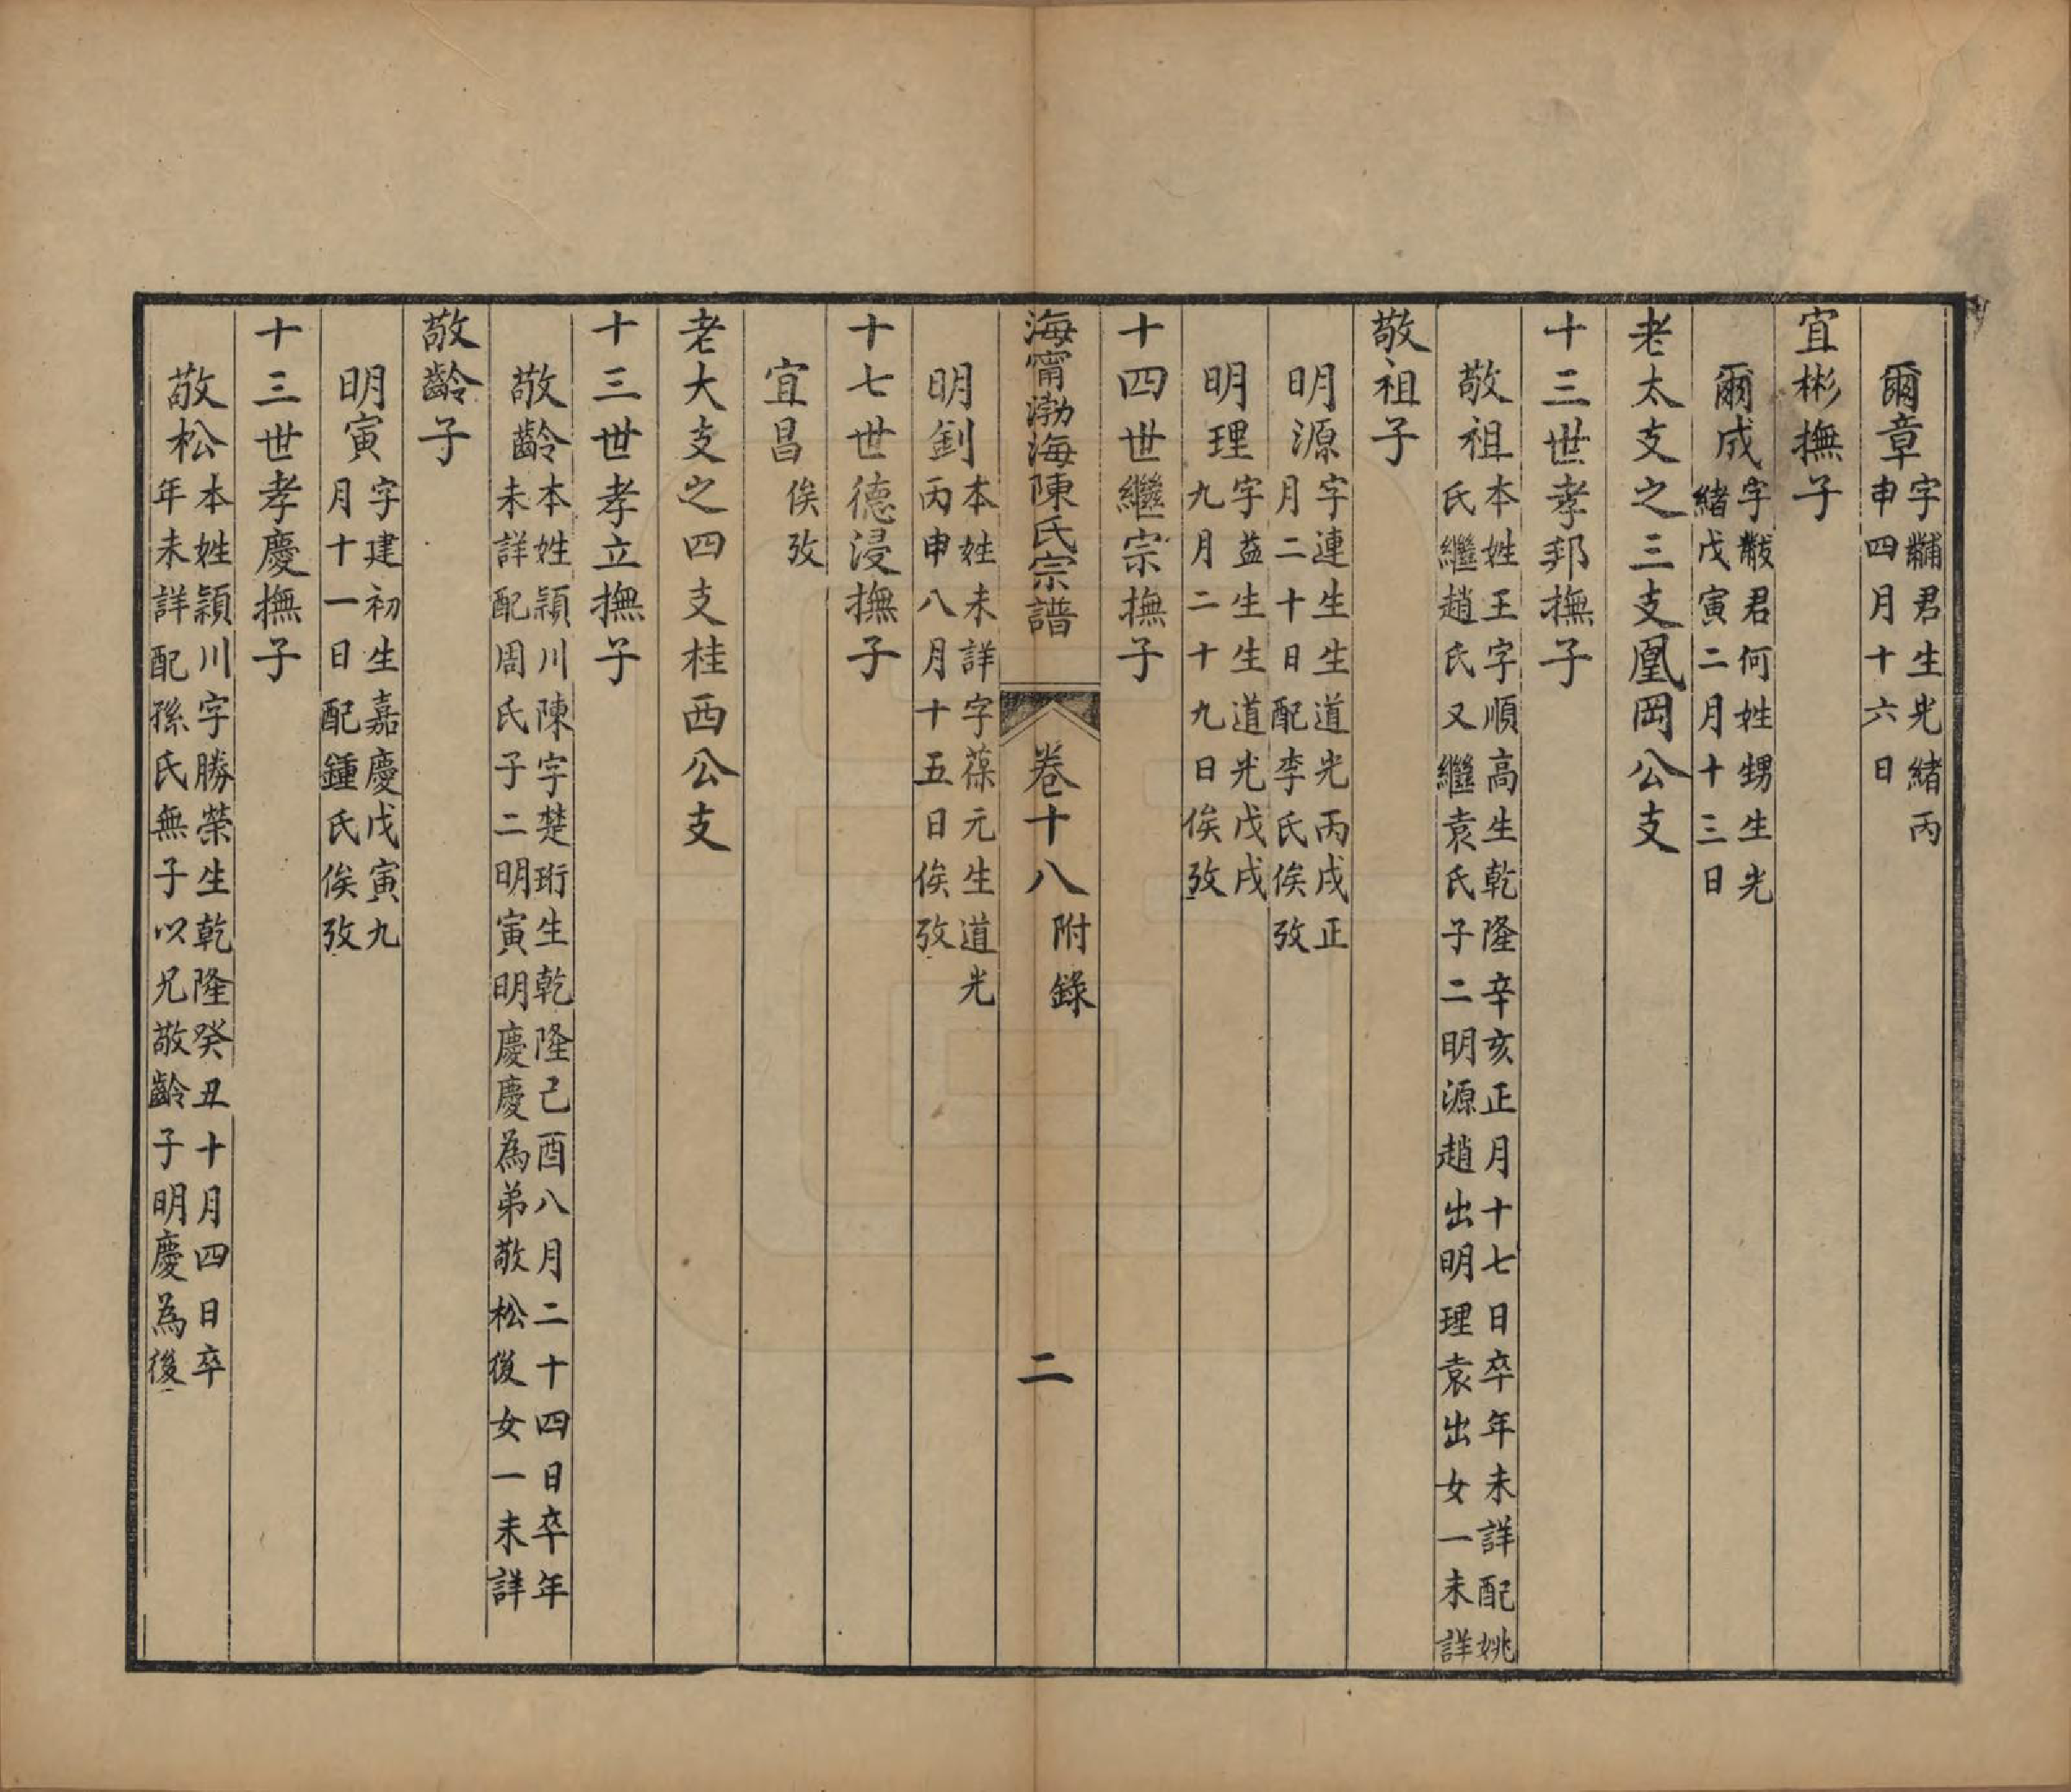 爾章字黼君生光緒丙
申四月十六日
宜彬撫子
爾成字黻君何姓甥生光
緒戊寅二月十三日
老大支之三支鳳岡公支
十三世孝邦撫子
敬祖本姓王字順高生乾隆辛亥正月十七日卒年未詳配姚
氏繼趙氏又繼袁氏子二明源趙出明理袁出女一未詳
敬祖子
明源字連生生道光丙戌正
月二十日配李氏俟攷
明理字益生生道光戊戌
九月二十九日俟攷
十四世繼宗撫子
海甯渤海陳氏宗譜
卷十八附錄
二
明釗本姓未詳字葆元生道光
丙申八月十五日俟攷
十七世德浸撫子
宜昌俟攷
老大支之四支桂西公支
十三世孝立撫子
敬齡本姓潁川陳字楚珩生乾隆己酉八月二十四日卒年
未詳配周氏子二明寅明慶慶為弟敬松後女一未詳
敬齡子
明寅字建初生嘉慶戊寅九
月十一日配鍾氏俟攷
十三世孝慶撫子
敬松本姓潁川字勝榮生乾隆癸丑十月四日卒
年未詳配孫氏無子以兄敬齡子明慶為後